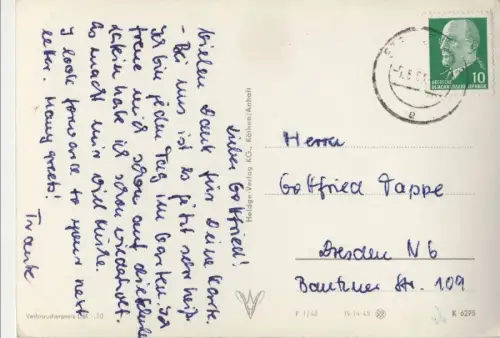 Lieber Gottfried!
Vielen Dank für Deine Karte.
- Bei uns ist es jetzt sehr heiß.
Ich bin jeden Tag im Garten. Ich
freue mich schon auf die Schule
Latein habe ich schon wiederholt.
Es macht mir viel Mühe.
I look forward to your next
letter. Many greets!
Frank
Herrn
Gottfried Pappe
Dresden N6
Bautzner Str. 109
Heldge-Verlag KG., Köthen/Anhalt
Verbraucherpreis DM -,20
DEUTSCHE
DEMOKRATISCHE REPUBLIK
10
e
K 6295